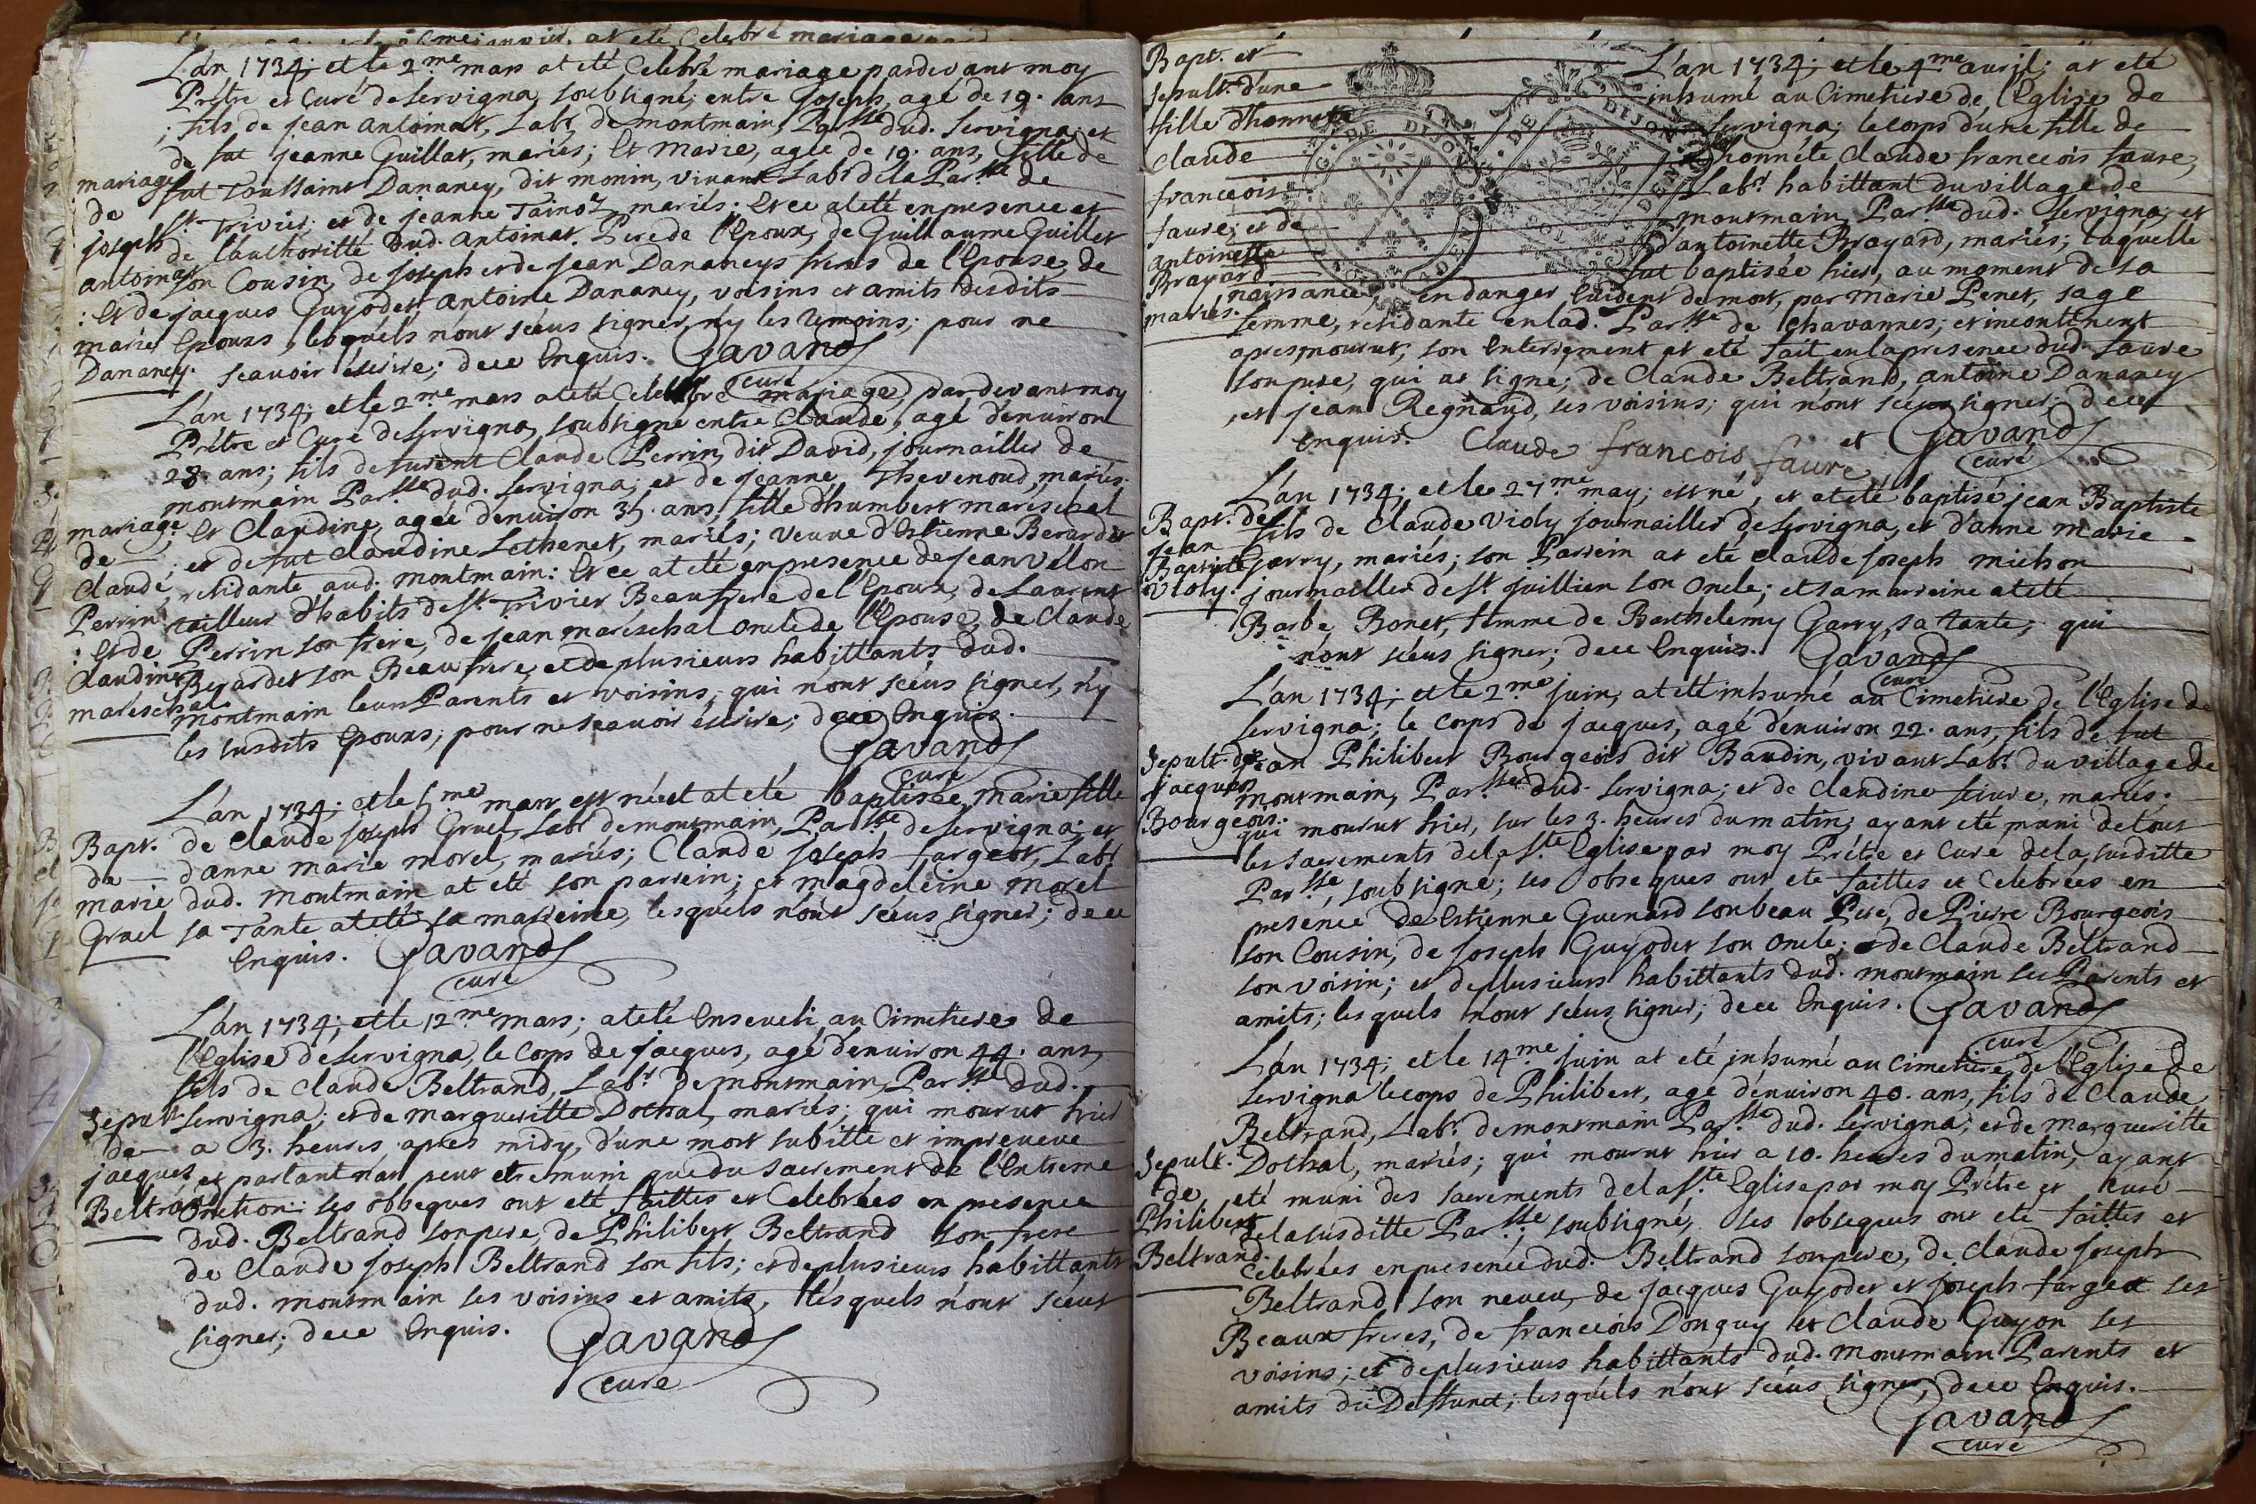 L'an 1734; et le 2.me mars at eté Celebré mariage pardevant moy
Prêtre et Curé de servigna soubsigné; entre Joseph, agé de 19. ans
; fils de jean antoinat, Labr. de montmain, Par.sse dud. servigna; et
de fut jeanne Guillat, mariés; Et Marie, agée de 19. ans, fille de
mariage
fut Toussaint Dananey, dit monin, vivant Labr. de la Par.sse de
de
st. Trivier; et de jeanne Tainoz mariés. Et ce at eté en presence et
joseph
de l'authoritté dud. antoinat. Pere de l'Epoux, de Guillaume Guillet
antoinat
son Cousin, de joseph et de jean Dananeys freres de l'Epouse, de
: Et de
jacques Guyodet, antoine Dananey, voisins et amits desdits
marie
Epoux, lesquels n'ont scéus signer, ny les temoins; pour ne
Dananey.
scavoir éscrire; de ce Enquis. Gavand
curé
L'an 1734; et le 2.me mars at eté Celebré mariage pardevant moy
Prêtre et Curé de servigna, soubsigné entre Claude, agé d'enuiron
28. ans; fils de furent Claude Perrin, dit David, journaillier de
montmain Par.sse dud. servigna; et de jeanne Thevenoud, mariés.
mariage
Et Claudine, agée d'enuiron 35. ans, fille d'humbert mareschal
de
et de fut Claudine Lethenet, mariés; veuve d'Estienne Berardet
Claude
residante aud. montmain: Et ce at eté en presence de jean Vélon
Perrin
tailleur d'habits de st. Trivier Beaufrere de l'Epoux, de Laurent
: Et de
Perrin son frere, de jean maréschal oncle de l'Epouse, de Claude
Claudine
Berardet son Beaufrere, et de plusieurs habittants dud.
mareschal
montmain leurs Parents et voisins; qui n'ont scéus signer, n'y
les susdits Epoux, pour ne scavoir éscrire; de ce Enquis.
Gavand
curé
L'an 1734; et le 5.me mars est née et at eté baptisée, marie fille
Bapt.
de Claude joseph Gruel, Labr. de montmain, Par.sse de servigna; et
de
d'anne marie morel, mariés; Claude joseph fargeot, Labr.
marie
dud. montmain at eté son parrein; et magdeleine morel
Gruel
sa Tante at eté sa marreine, lesquels n'ont scéus signer; de ce
Enquis. Gavand
curé
L'an 1734; et le 12.me mars; at eté Enseveli au Cimetiere de
l'Eglise de servigna, le Corps de jacques, agé d'enuiron 44. ans,
fils de Claude Beltrand, Labr. de montmain, Par.sse dud.
Sepult.
servigna; et de margueritte Dothal, mariés; qui mourut hier
de
a 3. heures, apres midy, d'une mort subitte et impreveue
jacques
et partant n'at peut etre muni que du sacrement de l'Extreme
Beltrand
onction: ses obseques ont eté faittes et Celebrées en presence
dud. Beltrand son pere, de Philibert Beltrand son frere
de Claude joseph Beltrand son fils; et de plusieurs habittants
dud. montmain ses voisins et amits, lesquels n'ont scéus
signer; de ce Enquis. Gavand
curé
Bapt. et
sepult. d'une
fille d'honnete
Claude
francois
faure; et de
antoinette
Brayard
mariés.
L'an 1734; et le 4.me avril; at eté
inhumé au Cimetiere de l'Eglise de
servigna; le corps d'une fille de
honnête Claude francois faure,
Labr. habittant du village de
montmain, Par.sse dud. servigna, et
d'antoinette Brayard, mariés; laquelle
fut baptisée hier, au moment de sa
naissance, en danger Euident de mort, par Marie Penet, sage
femme, residante en lad. Par.sse de Chavannes; et incontinent
apres mourut; son Enterrement at eté fait en la presence dud. faure
son pere, qui at signé; de Claude Beltrand, antoine Dananey
, et jean Regnaud, ses voisins; qui n'ont scéus signer; de ce
Enquis. Claude francois faure et Gavand
curé
L'an 1734; et le 27.me may; est né, et at eté baptisé jean Baptiste
Bapt. de
fils de Claude Violy journaillier de servigna, et d'anne Marie
jean
Baptiste
Garry, mariés; son Parrein at eté Claude joseph michon
Violy.
journaillier de st. juillien son oncle; et sa marreine at eté
Barbe Bonet, femme de Barthelemy Garry, sa tante; qui
n'ont scéus signer; de ce Enquis. Gavand
curé
L'an 1734; et le 2.me juin; at eté inhumé au Cimetiere de l'Eglise de
servigna; le Corps de jacques, agé d'enuiron 22. ans, fils de fut
Sepult. de
jean Philibert Bourgeois dit Baudin, vivant Labr. du village de
jacques
montmain, Par.sse dud. servigna; et de Claudine feivre, mariés;
Bourgeois.
qui mourut hier, sur les 3. heures du matin; ayant eté muni de tous
les sacrements de la s.te Eglise par moy Prêtre et Curé de la susditte
Par.sse, soubsigné; ses obseques ont eté faittes et Celebrées en
presence de Estienne Guenard son beau Pere, de Pierre Bourgeois
son Cousin, de joseph Guyodet son oncle; et de Claude Beltrand
son voisin; et de plusieurs habittants dud. montmain ses Parents et
amits; lesquels n'ont scéus signer; de ce Enquis. Gavand
curé
L'an 1734; et le 14.me juin at eté inhumé au cimetiere de l'Eglise de
servigna le corps de Philibert, agé d'enuiron 40. ans, fils de Claude
Beltrand, Labr. de montmain Par.sse dud. servigna; et de margueritte
Sepult.
Dothal, mariés; qui mourut hier a 10. heures du matin, ayant
de
eté muni des sacrements de la s.te Eglise par moy Prêtre et curé
Philibert
de la susditte Par.sse, soubsigné, ses obseques ont eté faittes et
Beltrand.
Celebrées en presence dud. Beltrand son pere, de Claude joseph
Beltrand son neveu, de jacques Guyodet et joseph fargeot ses
Beaux freres, de francois Donguy et Claude Guyon ses
voisins; et de plusieurs habittants dud. montmain Parents et
amits du Deffunct; lesquels n'ont scéus signer; de ce Enquis.
Gavand
curé